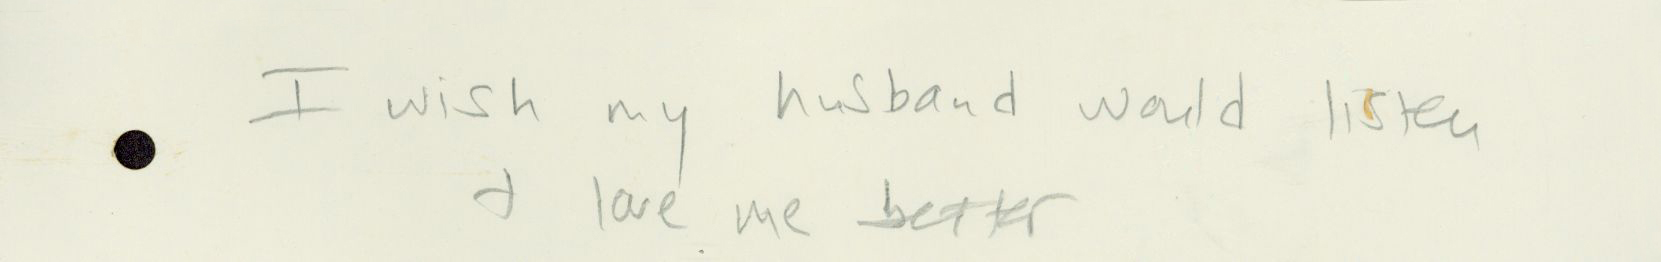 I wish my husband would listen
& love me better